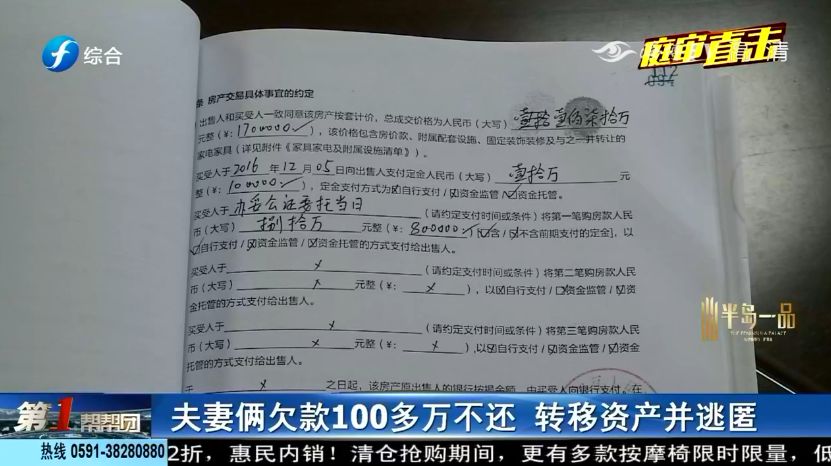 综合
庭审直击
112
094
条 房产交易具体事宜的约定
出售人和买受人一致同意该房产按套计价，总成交价格为人民币（大写）壹佰柒拾万
元整（¥：1700000），该价格包含房价款、附属配套设施、固定装饰装修及与之一并转让的
家电家具（详见附件《家具家电及附属设施清单》）。
买受人于2016年12月05日向出售人支付定金人民币（大写）壹拾万元
整（¥：100000），定金支付方式为☑自行支付/☑资金监管/☑资金托管。
买受人于办妥公证委托当日（请约定支付时间或条件）将第一笔购房款人民
币（大写）捌拾万元整（¥：800000）[☑含/☑不含前期支付的定金]，以
☑自行支付/☑资金监管/☑资金托管的方式支付给出售人。
买受人于×（请约定支付时间或条件）将第二笔购房款人民
币（大写）×元整（¥：×），以☑自行支付/☑资金监管/☑资
金托管的方式支付给出售人。
买受人于×（请约定支付时间或条件）将第三笔购房款人民
币（大写）×元整（¥：×），以☑自行支付/☑资金监管/☑资金
托管的方式支付给出售人。
于×之日起，该房产原出售人的银行按揭金额，由买受人向银行支付。在
半岛一品
第1帮帮团
夫妻俩欠款100多万不还 转移资产并逃匿
热线 0591-38280880
2折，惠民内销！清仓抢购期间，更有多款按摩椅限时限量，低